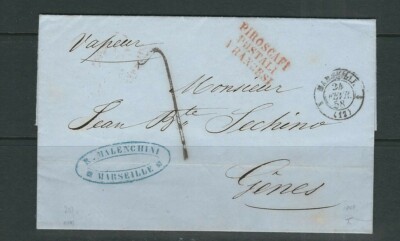 Vapeur
PIROSCAFI
POSTALI
FRANCESI
MARSEILLE
24
FEVR.
58
(12)
Monsieur
Jean Bte Sechino
Gênes
1
P. MALENCHINI
MARSEILLE